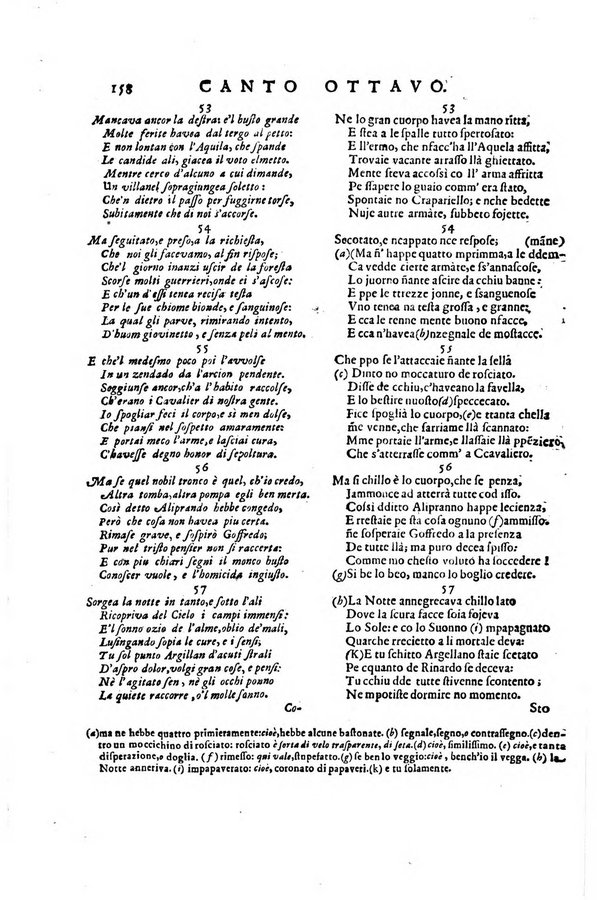 158 CANTO OTTAVO.
53
Mancava ancor la destra: e'l busto grande
Molte ferite havea dal tergo al petto:
E non lontan con l'Aquila, che spande
Le candide ali, giacea il voto elmetto.
Mentre cerco d'alcuno a cui dimande,
Un villanel sopragiungea soletto:
Che'n dietro il passo per fuggirne torse,
Subitamente che di noi s'accorse.
54
Ma seguitato, e preso, a la richiesta,
Che noi gli facevamo, al fin rispose;
Che'l giorno inanzi uscir de la foresta
Scorse molti guerrieri, onde ei s'ascose:
E ch'un d'essi tenea recisa testa
Per le sue chiome bionde, e sanguinose:
La qual gli parve, rimirando intento,
D'huom giovinetto, e senza peli al mento.
55
E che'l medesmo poco poi l'avvolse
In un zendado da l'arcion pendente.
Soggiunse ancor, ch'a l'habito raccolse,
Ch'erano i Cavalier di nostra gente.
Io spogliar feci il corpo, e sì men dolse,
Che piansi nel sospetto amaramente:
E portai meco l'arme, e lasciai cura,
C'havesse degno honor di sepoltura.
56
Ma se quel nobil tronco è quel, ch'io credo,
Altra tomba, altra pompa egli ben merta.
Così detto Aliprando hebbe congedo,
Però che cosa non havea piu certa.
Rimase grave, e sospirò Goffredo;
Pur nel tristo pensier non si raccerta:
E con piu chiari segni il monco busto
Conoscer vuole, e l'homicida ingiusto.
57
Sorgea la notte in tanto, e sotto l'ali
Ricopriva del Cielo i campi immensi:
E'l sonno ozio de l'alme, oblio de'mali,
Lusingando sopia le cure, e i sensi;
Tu sol punto Argillan d'acuti strali
D'aspro dolor, volgi gran cose, e pensi:
Nè l'agitato sen, nè gli occhi ponno
La quiete raccorre, o'l molle sonno.
Co-
53
Ne lo gran cuorpo havea la mano ritta,
E stea a le spalle tutto spertosato:
E ll'ermo, che nfacc'ha ll'Aquela affitta;
Trovaie vacante arrasso llà ghiettato.
Mente steva accossì co ll' arma affritta
Pe ssapere lo guaio comm' era stato,
Spontaie no Crapariello; e nche bedette
Nuje autre armàte, subbeto fojette.
54
Secotato, e ncappato nce respose; (māne)
(a)(Ma ñ' happe quatto mprimma, a le ddem-
Ca vedde cierte armàte, e ss'annascose,
Lo juorno ñante ascire da cchiu banne:
E ppe le ttrezze jonne, e ssanguenose
Vno tenea na testa grossa, e granne;
E cca le renne mente buono nfacce,
E ca n'havea(b)nzegnale de mostacce.
55
Che ppo se l'attaccaie ñante la sella
(c) Dinto no moccaturo de rosciato.
Disse de cchiu, c'haveano la favella,
E lo bestire nuosto(d)speccecato.
Fice spoglià lo cuorpo,(e)e ttanta chella
m̄e venne, che sarriame llà scannato:
Mme portaie ll'arme, e llassaie llà ppēziero
Che s'atterrasse comm' a Ccavaliero.
56
Ma si chillo è lo cuorpo, che se penza,
Jammonce ad atterrà tutte cod isso.
Cossì dditto Alipranno happe lecienza;
E rrestaie pe sta cosa ognuno (f)ammisso.
ñe sosperaie Goffredo a la presenza
De tutte llà; ma non credette a chisso:
Comme mo chesto volutò ha soccedere!
(g)Si be lo beo, manco lo boglio credere.
57
(h)La Notte annegrecava chillo lato
Dove la scura facce soia fojeva
Lo Sole: e co lo Suonno (i) mpapagnato
Quarche rrecietto a li mortale deva:
(K)E tu schitto Argellano staie scetato
Pe cquanto de Rinardo se deceva:
Tu cchiu dde tutte stivenne scontento;
Ne mpotiste dormire no momento.
Sto
(a)ma ne hebbe quattro primieramente: cioè, hebbe alcune bastonate. (b) segnale, segno, o contrassegno.(c)den-
tro un moccichino di rosciato: rosciato è sorta di velo trasparente, di seta.(d) cioè, similissimo. (e) cioè, e tanta
disperazione, o doglia. (f) rimesso: qui vale, stupefatto.(g) se ben lo veggio: cioè, bench'io il vegga. (h) la
Notte anneriva. (i) impapaverato: cioè, coronato di papaveri.(k) e tu solamente.